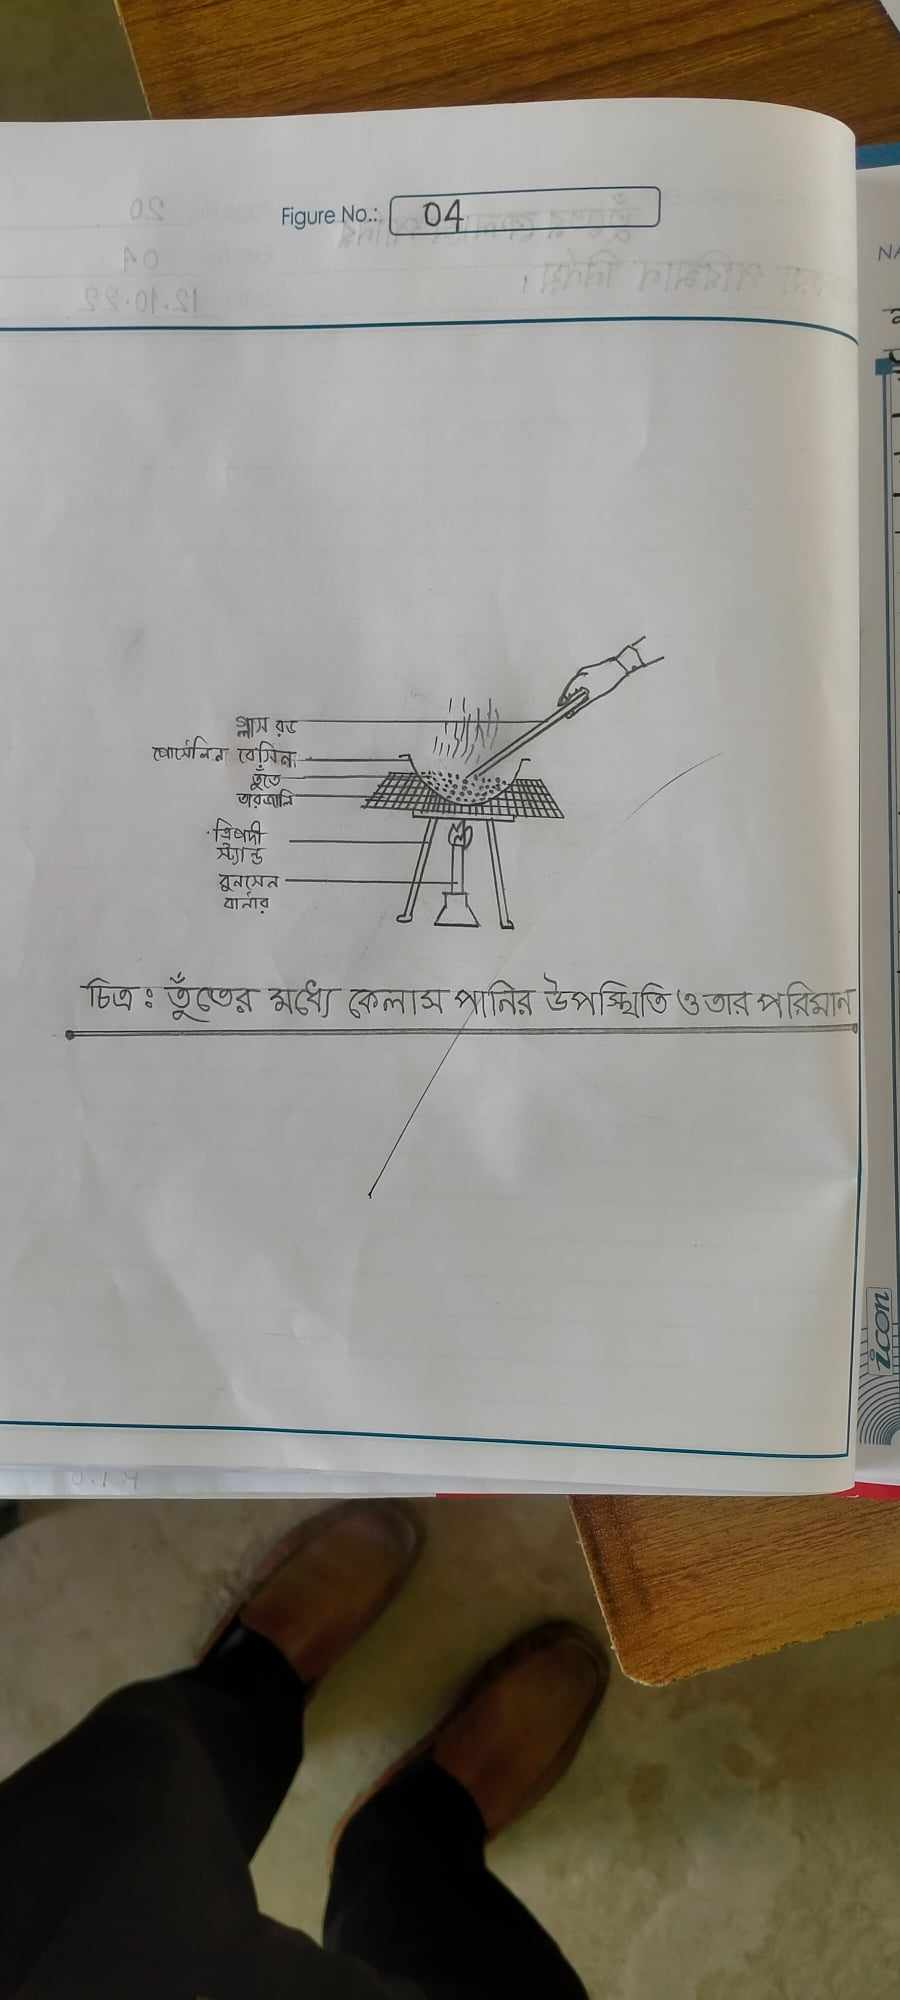 Figure No.: 04
গ্লাস রড
পোর্সেলিন বেসিন
তুঁতে
তারজালি
ত্রিপদী
স্ট্যান্ড
বুনসেন
বার্নার
চিত্র : তুঁতের মধ্যে কেলাস পানির উপস্থিতি ও তার পরিমান
icon
NA